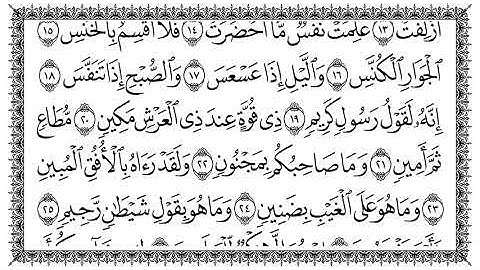 أُزْلِفَتْ ١٣ عَلِمَتْ نَفْسٌ مَّا أَحْضَرَتْ ١٤ فَلَا أُقْسِمُ بِالْخُنَّسِ ١٥
الْجَوَارِ الْكُنَّسِ ١٦ وَاللَّيْلِ إِذَا عَسْعَسَ ١٧ وَالصُّبْحِ إِذَا تَنَفَّسَ ١٨
إِنَّهُ لَقَوْلُ رَسُولٍ كَرِيمٍ ١٩ ذِي قُوَّةٍ عِندَ ذِي الْعَرْشِ مَكِينٍ ٢٠ مُّطَاعٍ
ثَمَّ أَمِينٍ ٢١ وَمَا صَاحِبُكُم بِمَجْنُونٍ ٢٢ وَلَقَدْ رَءَاهُ بِالْأُفُقِ الْمُبِينِ
٢٣ وَمَا هُوَ عَلَى الْغَيْبِ بِضَنِينٍ ٢٤ وَمَا هُوَ بِقَوْلِ شَيْطَانٍ رَّجِيمٍ ٢٥